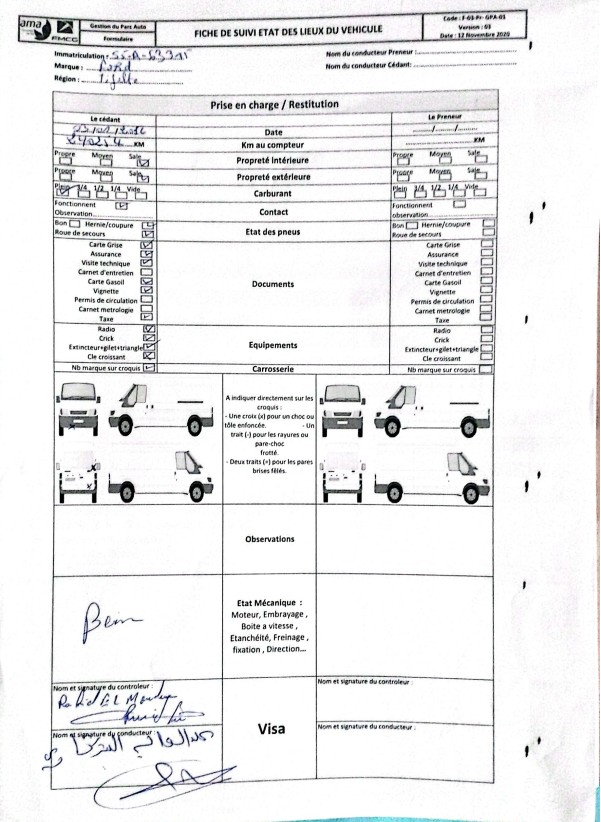 ama
FMCG
Gestion du Parc Auto
Formulaire
FICHE DE SUIVI ETAT DES LIEUX DU VEHICULE
Code : F-03-Pr- GPA-03
Version : 03
Date : 12 Novembre 2020
Immatriculation :
Marque : Ford
Région :
Nom du conducteur Preneur :
Nom du conducteur Cédant:
Prise en charge / Restitution
Le cédant
Le Preneur
Date
KM Km au compteur KM
Propre Moyen Sale Propreté intérieure Propre Moyen Sale
Propre Moyen Sale Propreté extérieure Propre Moyen Sale
Plein 3/4 1/2 1/4 Vide Carburant Plein 3/4 1/2 1/4 Vide
Fonctionnent Contact Fonctionnent
Observation observation
Bon Hernie/coupure Etat des pneus Bon Hernie/coupure
Roue de secours Roue de secours
Carte Grise Carte Grise
Assurance Assurance
Visite technique Visite technique
Carnet d'entretien Carnet d'entretien
Carte Gasoil Documents Carte Gasoil
Vignette Vignette
Permis de circulation Permis de circulation
Carnet metrologie Carnet metrologie
Taxe Taxe
Radio Radio
Crick Equipements Crick
Extincteur+gilet+triangle Extincteur+gilet+triangle
Cle croissant Cle croissant
Nb marque sur croquis Carrosserie Nb marque sur croquis
A indiquer directement sur les
croquis :
- Une croix (x) pour un choc ou
tôle enfoncée. - Un
trait (-) pour les rayures ou
pare-choc
frotté.
- Deux traits (=) pour les pares
brises fêlés.
Observations
Etat Mécanique :
Moteur, Embrayage ,
Boite a vitesse ,
Etanchéité, Freinage ,
fixation , Direction...
Bein
Nom et signature du controleur :
Nom et signature du controleur :
Visa
Nom et signature du conducteur :
Nom et signature du conducteur :